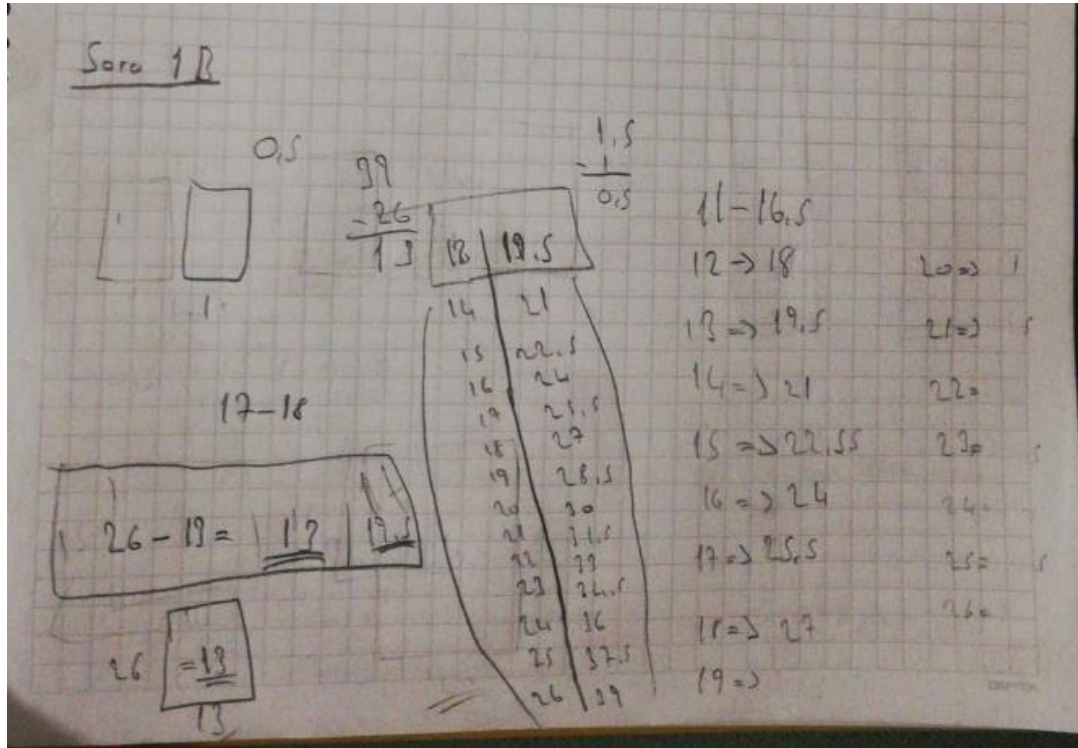 Soru 1B
0,5
1
39
-26
13
1,5
- 1
0,5
13 | 19.5
14 21
15 22.5
16 24
17 25.5
18 27
19 28.5
20 30
21 31.5
22 33
23 34.5
24 36
25 37.5
26 39
17-18
26 - 13 = 13 | 19.5
26 = 13
13
11-16,5
12 => 18
13 => 19.5
14 => 21
15 => 22,55
16 => 24
17 => 25.5
18 => 27
19 =>
20 =>
21 =>
22=
23=
24=
25=
26=